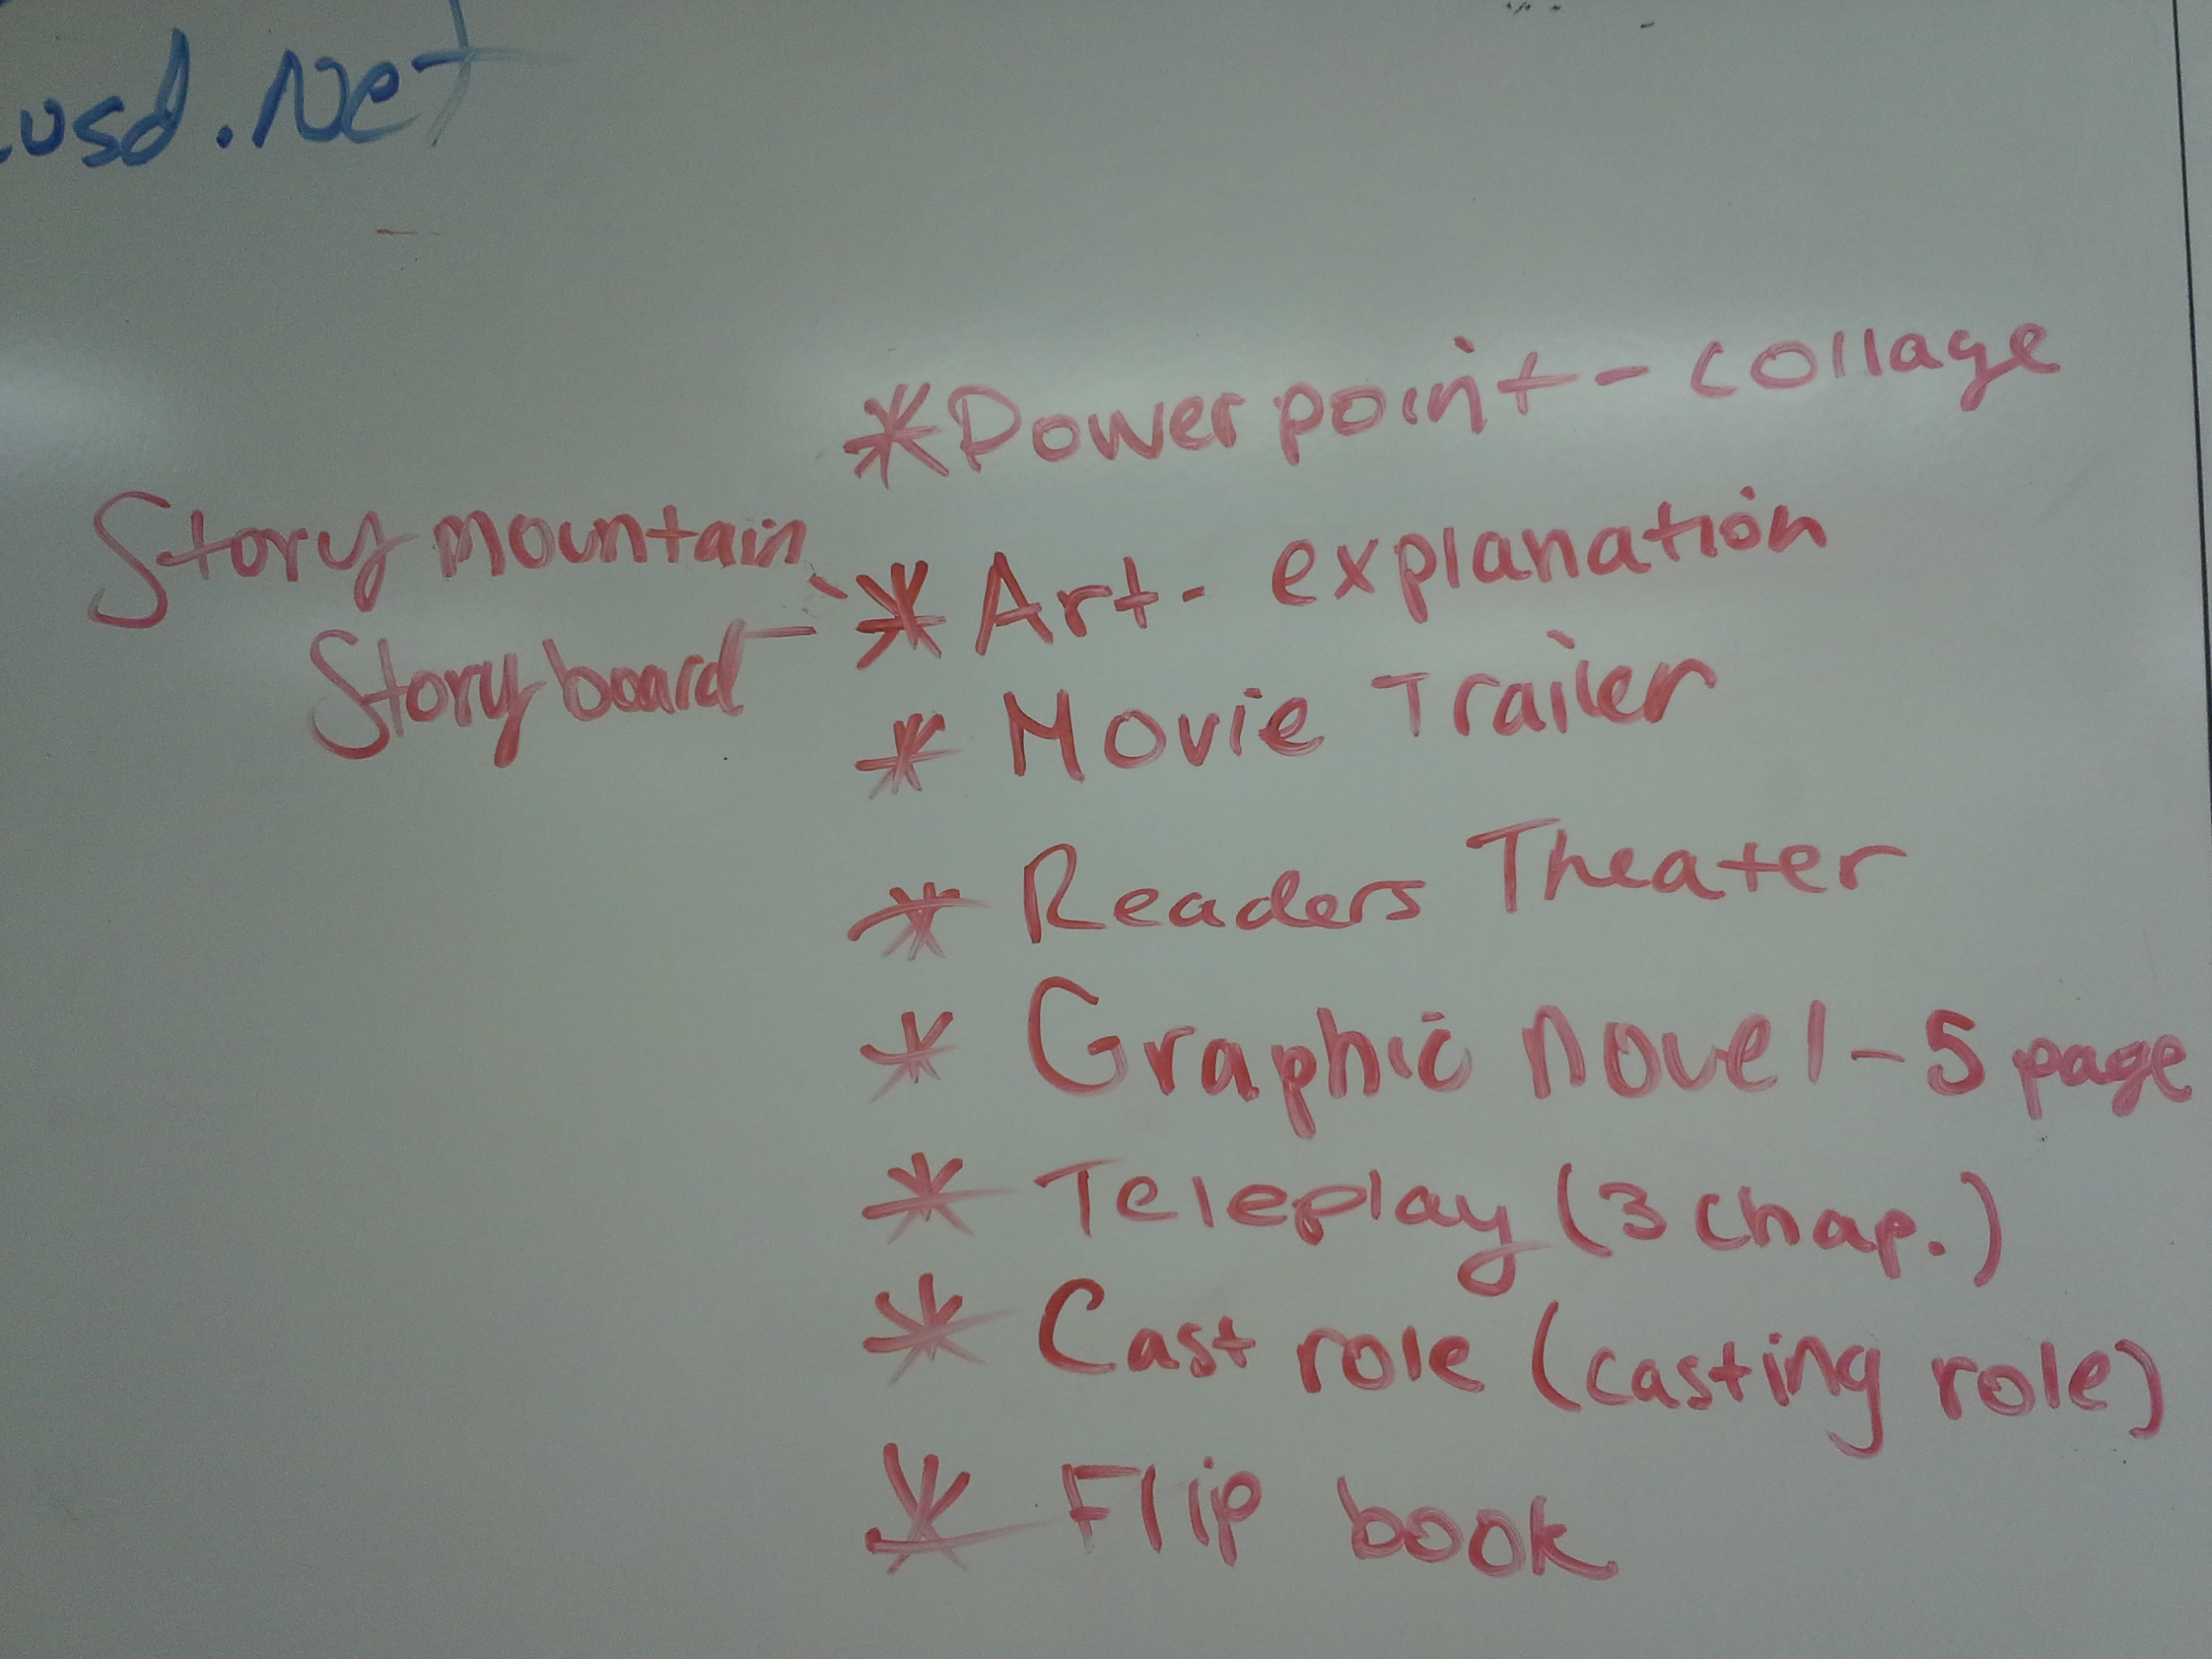 .usd.Net
*Power point - collage
Story mountain
* Art - explanation
Story board
* Movie Trailer
* Readers Theater
* Graphic novel - 5 page
* Teleplay (3 chap.)
* Cast role (casting role)
* Flip book